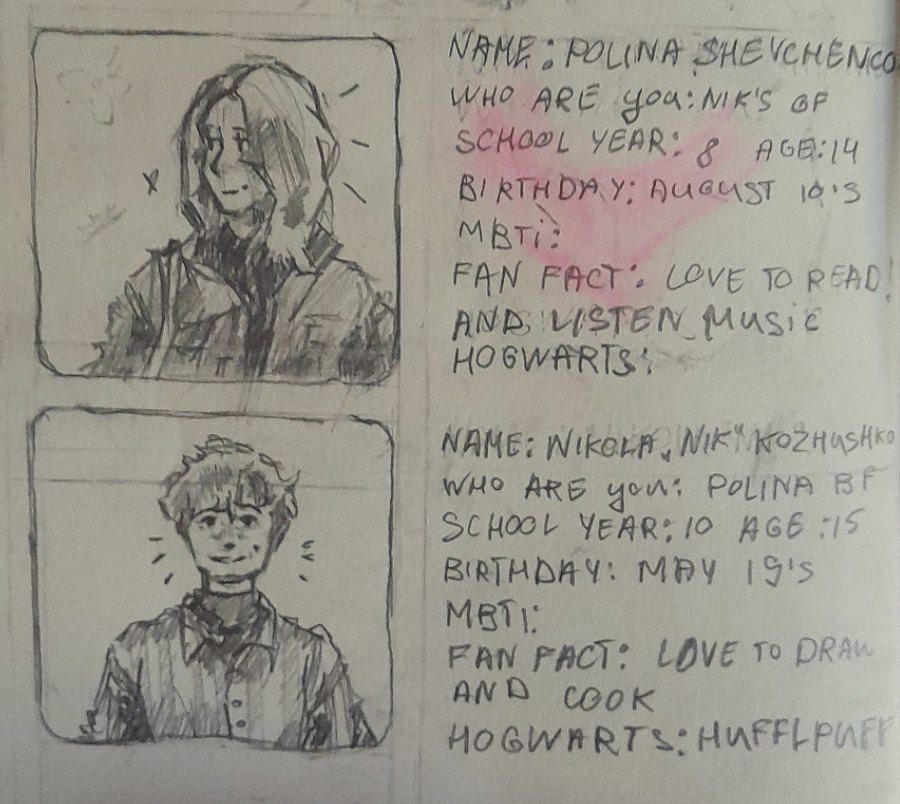 NAME: POLINA SHEVCHENCO
WHO ARE you: NIK'S GF
SCHOOL YEAR: 8 AGE:14
BIRTHDAY: AUGUST 19'S
MBTi:
FAN FACT: LOVE TO READ!
AND LISTEN MUSIC
HOGWARTS:
NAME: NIKOLA „NIK" KOZHUSHKO
WHO ARE you: POLINA BF
SCHOOL YEAR: 10 AGE:15
BIRTHDAY: MAY 19'S
MBTI:
FAN FACT: LOVE TO DRAW
AND COOK
HOGWARTS: HUFFLPUFF